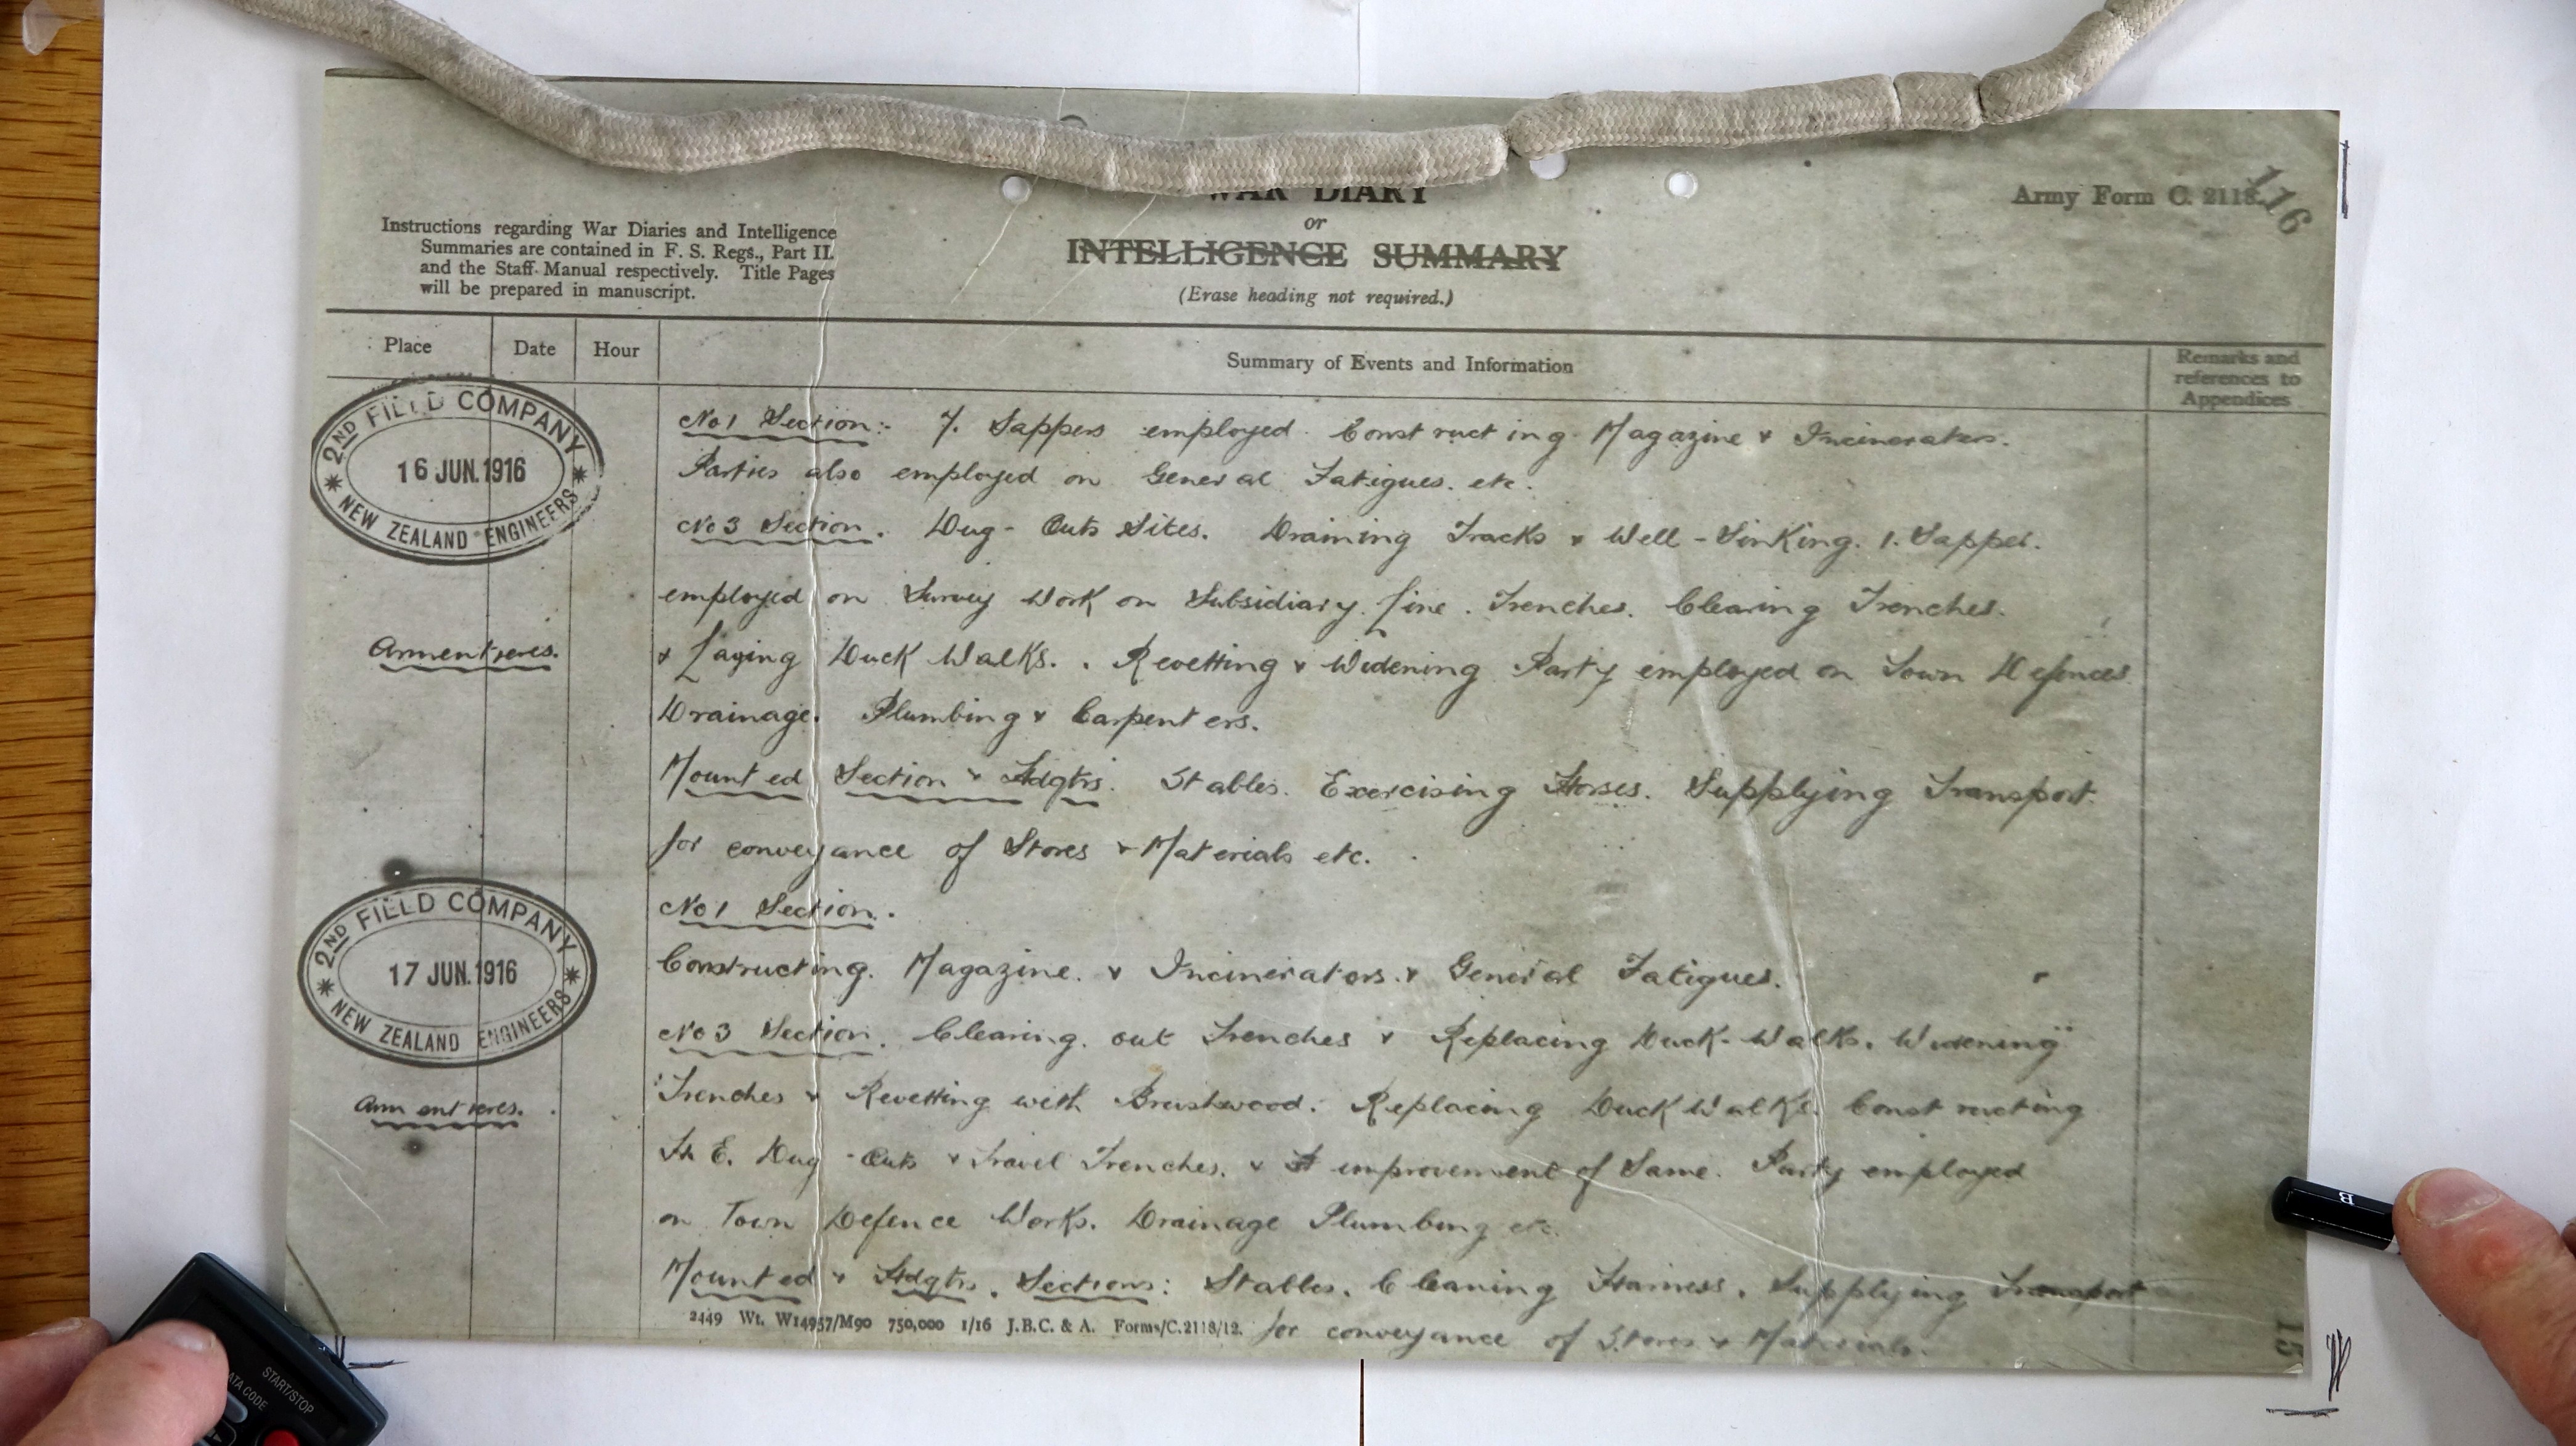 WAR DIARY
Army Form C. 2118.
116
or
INTELLIGENCE SUMMARY
(Erase heading not required.)
Instructions regarding War Diaries and Intelligence
Summaries are contained in F. S. Regs., Part II.
and the Staff Manual respectively. Title Pages
will be prepared in manuscript.
Place Date Hour Summary of Events and Information Remarks and references to Appendices
2ND FIELD COMPANY
16 JUN. 1916
NEW ZEALAND ENGINEERS
No 1 Section:- 7. Sappers employed Constructing Magazine & Incinerators.
Parties also employed on General Fatigues. etc.
No 3 Section. Dug-Outs Sites. Draining Tracks & Well-Sinking. 1. Sapper.
employed on Survey Work on Subsidiary line. Trenches. Clearing Trenches.
Armentieres.
& Laying Duck Walks. Revetting & Widening Party employed on Town Defences
Drainage. Plumbing & Carpenters.
Mounted Section & Hdqtrs. Stables. Exercising Horses. Supplying Transport.
for conveyance of Stores & Materials etc.
2ND FIELD COMPANY
17 JUN. 1916
NEW ZEALAND ENGINEERS
No 1 Section.
Constructing. Magazine. & Incinerators. & General Fatigues.
No 3 Section. Clearing. out Trenches & Replacing Duck-Walks. Widening
Trenches & Revetting with Brushwood. Replacing Duck Walks. Constructing
Armentieres.
H. E. Dug-Outs & Travel Trenches. & improvement of Same. Party employed
on Town Defence Works. Drainage Plumbing etc.
Mounted & Hdqtrs. Sections: Stables. Cleaning Harness. Supplying Transport
2449 Wt. W14957/M90 750,000 1/16 J.B.C. & A. Forms/C.2118/12.
for conveyance of Stores & Materials.
15
START/STOP
DATA CODE
B